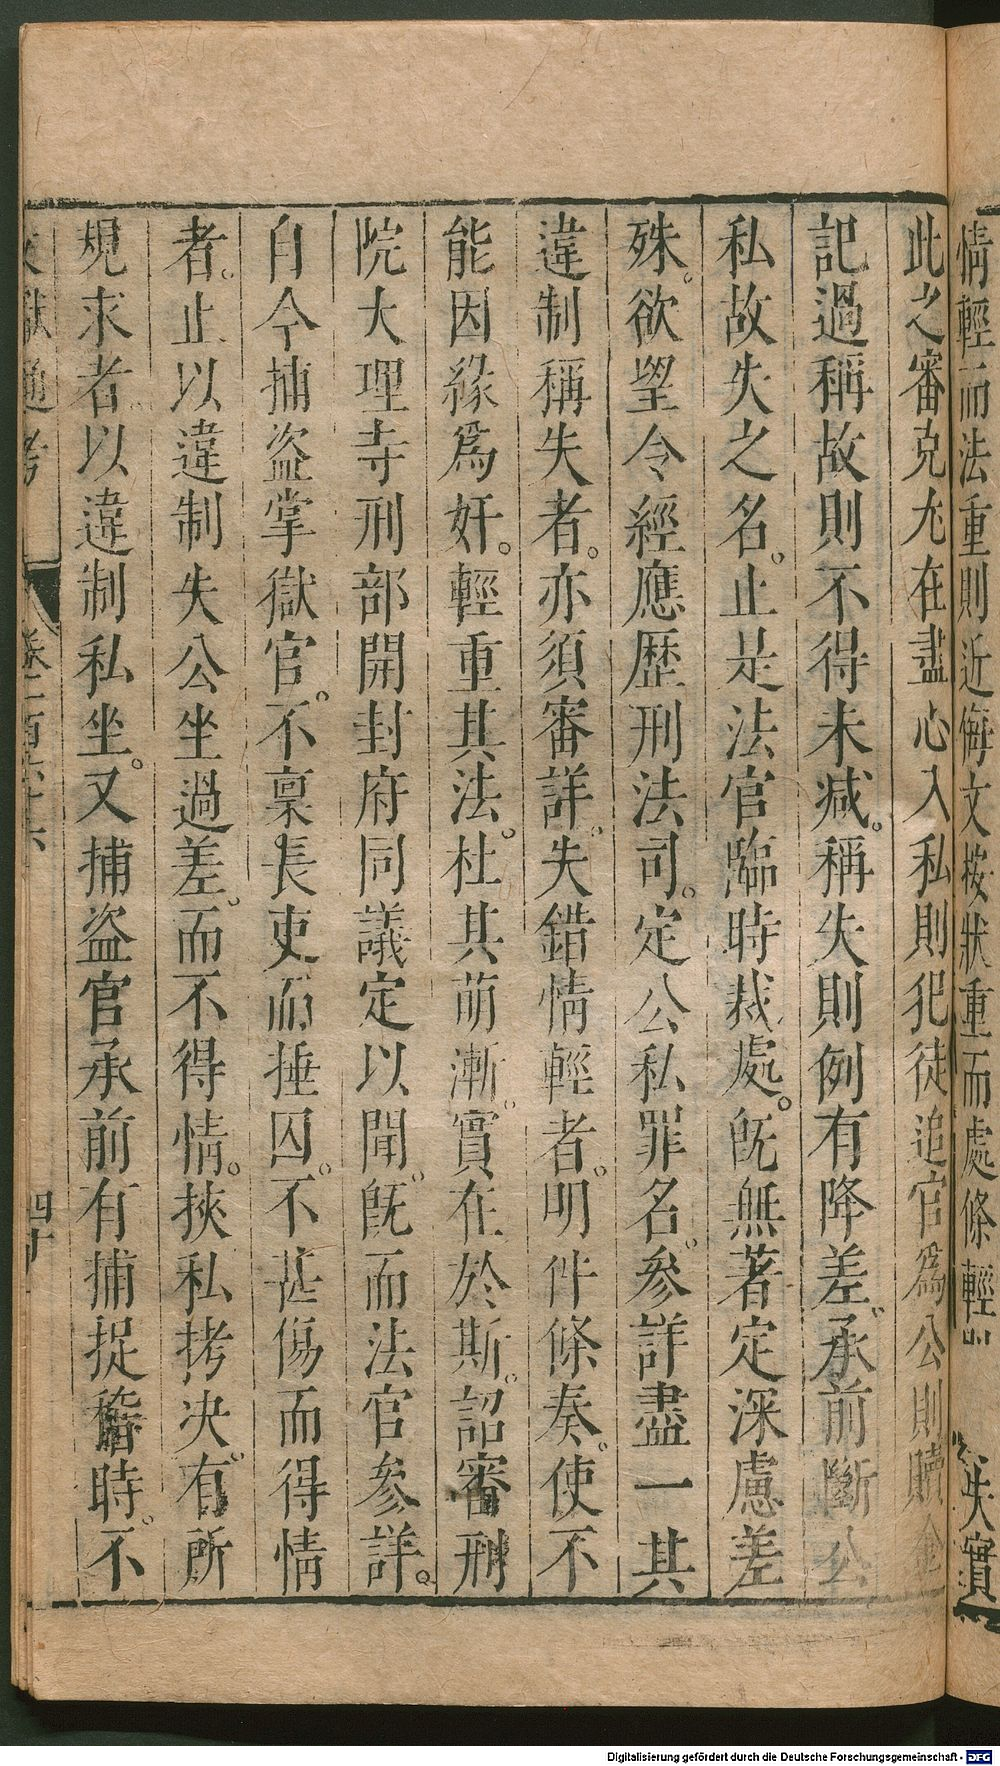 情輕而法重則近侮文按狀重而處條輕
失實
此之審克尤在盡心入私則犯徒追官爲公則贖金
記過稱故則不得末减。稱失則例有降差。承前斷公
私故失之名。止是法官臨時裁處。旣無著定深慮差
殊。欲望令經應歷刑法司。定公私罪名。參詳盡一其
違制稱失者。亦須審詳。失錯情輕者。明件條奏。使不
能因緣爲奸。輕重其法。杜其萌漸。實在於斯。詔審刑
院大理寺刑部開封府同議定以聞。旣而法官參詳。
自今捕盜掌獄官。不稟長吏而捶囚。不甚傷而得情
者。止以違制失公坐過差。而不得情。挾私拷决。有所
規求者。以違制私坐。又捕盜官承前有捕捉稽時。不
文獻通考
卷一百六十六
四十
Digitalisierung gefördert durch die Deutsche Forschungsgemeinschaft - DFG